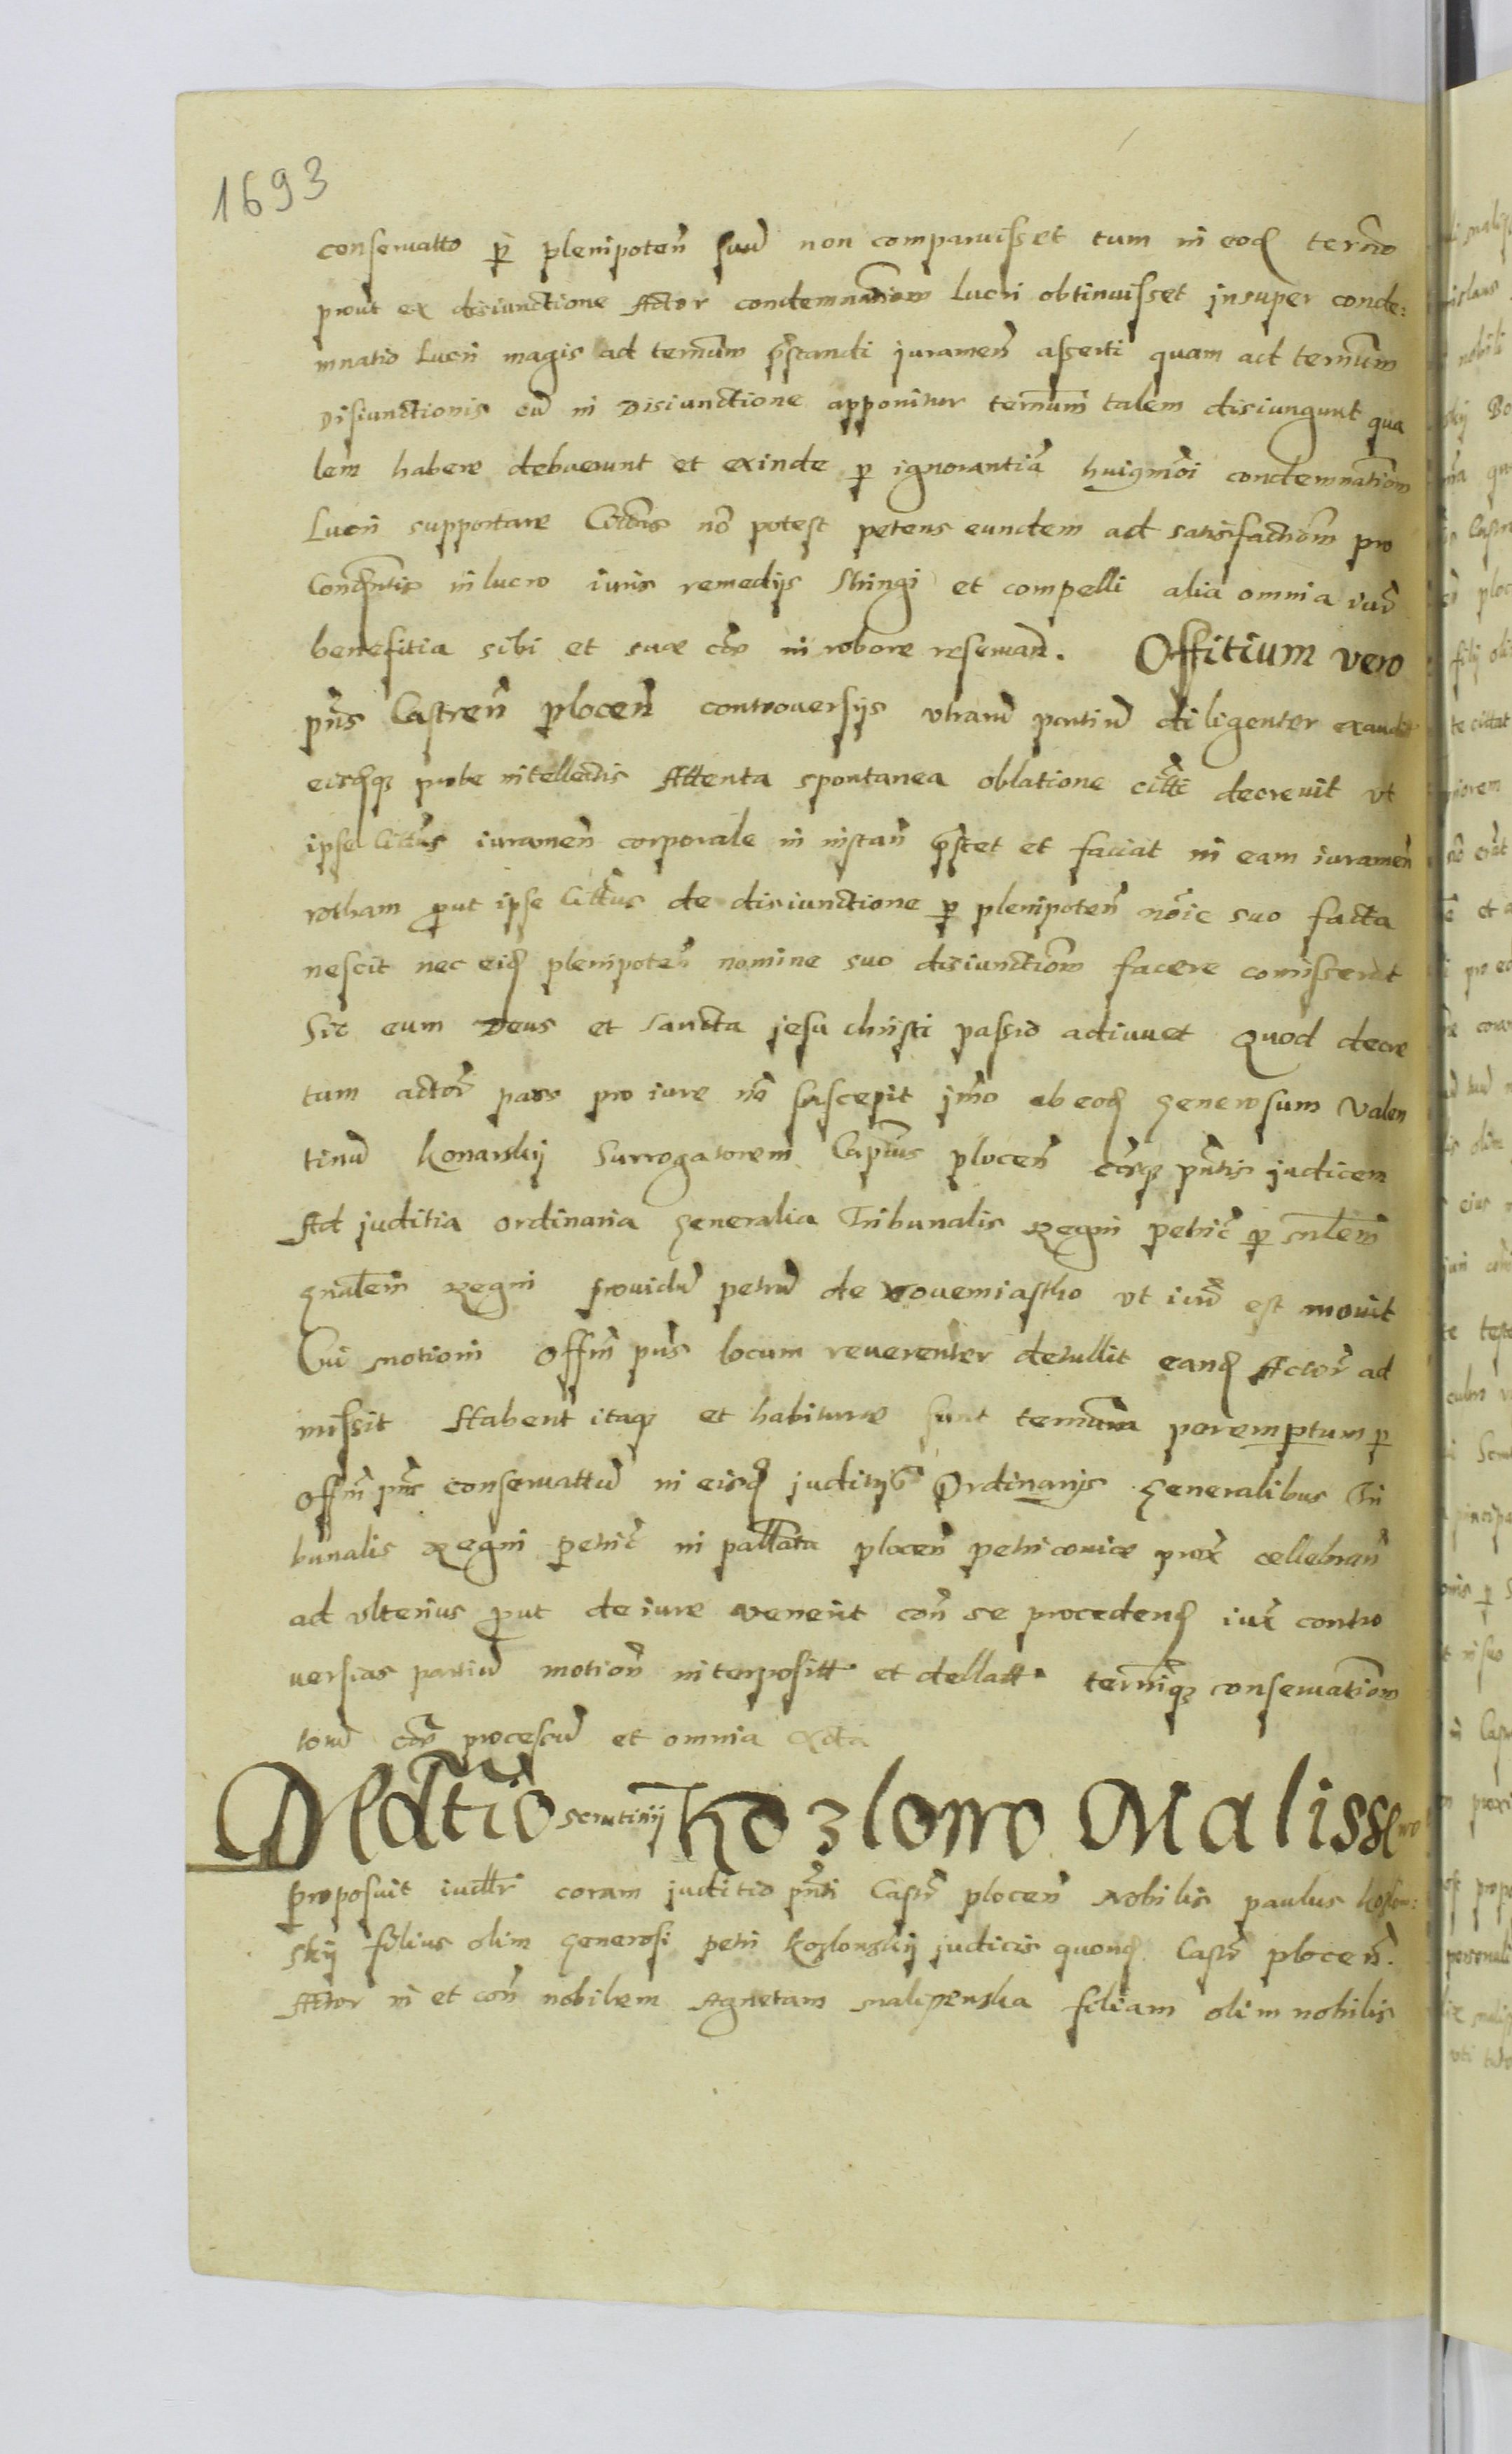 1693
conservatto p plenipoten̄ suū non comparuisset tum in eod termō
prout ex disiunctione Actor condemnationem Lucri obtinuisset jnsuper conde:
mnatio Lucri magis ad terminum p̄standi juramen̄ asserti quam ad terminum
Disiunctionis cū in Disiunctione apponitur terminum talem disiungunt qua
lem habere debuerunt et exinde p ignorantiā huiusmōi condemnationem
Lucri supportare Cittatus nō potest petens eundem ad satisfactiōm pro
in lucro iuris remedijs stringi et compelli alia omnia iurē
benefitia sibi et suæ in robore reservand. Offitium vero
pn̄s Castren̄ plocen̄ controversijs utrarū partiū diligenter exaudit
eisdqʒ probe intellectis Attenta spontanea oblatione citti decrevit ut
ipse Cittus iuramen̄ corporale in instan̄ p̄stet et faciat in eam iuramen̄
rotham put ipse Cittus de disiunctione p plenipoten̄ nōie suo facta
nescit nec eid plenipoten̄ nomine suo disiunctiōm facere comisserat
Sic eum Deus et sancta jesu christi passio adiuvet Quod decre
tum actor̄ pars pro iure nō suscepit jmō ab eod generosum Valen
tinū Konarskij Surrogatorem Captus plocen̄ pn̄tis judicem
Ad juditia ordinaria generalia Tribunalis Regni petric̄ p
gnālem Regni providū petrū de novemiastho ut iurē est movit
Cui motioni Offm̄ pn̄s locum reverenter detullit eand Actor̄ ad
missit Habent itaqʒ et habituræ sunt terminum peremptum p
Offm̄ pn̄s conservattū in eisd juditijs Ordinarijs generalibus Tri
bunalis Regni petric̄ in pallata plocen̄ petricoviæ prox̄ cellebran̄
ad ulterius put de iure venerit con̄ se procedend iux̄ contro
versias partiū motion̄ interpositt et dellatt terminiqʒ conservationem
totū processū et omnia acta
scrutinij Kozlowo Malissewo
proposuit iudllr coram juditio pn̄ti Castr̄ plocen̄ Nobilis paulus Kozlow:
skij filius olim generosi petri Kozlowskij judicis quond Castr̄ plocen̄.
Actor in et con̄ nobilem Agnetam filiam olim nobilis